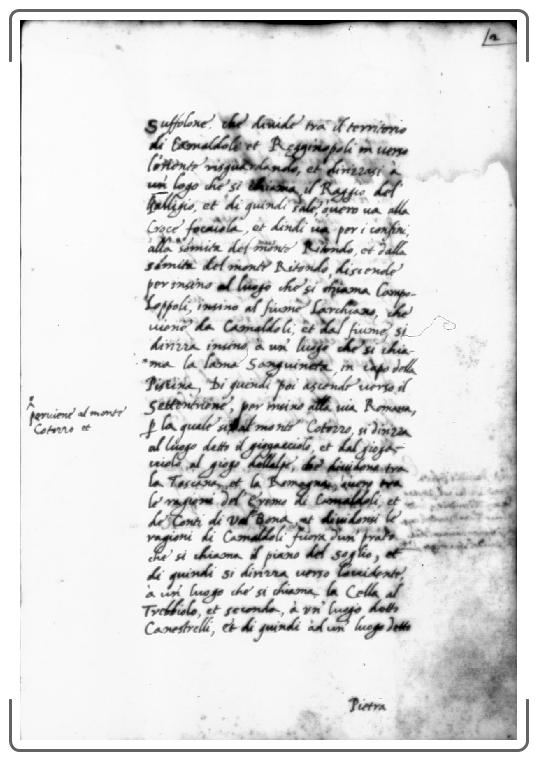 Suffolone che divide tra il territorio
di Camaldoli et Regginopoli in verso
l'oriente risguardando, et dirizzasi à
un logo che si chiama il Raggio del
et di quindi sale, overo va alla
Croce focaiola, et dindi va per i confini
alla somita del monte Ritondo, et dalla
somita del monte Ritondo, discende
per insino al luogo che si chiama Campo-
Loppoli, insino al fiume Larchiano, che
viene da Camaldoli, et dal fiume, si
dirizza insino à un' luogo che si chia-
ma la lama Sanguineta, in capo della
Piscina, Di quindi poi ascende verso il
Settentrione, per insino alla via Romana,
perviene al monte
Cotozzo et
la quale al monte Cotozzo, si dirizza
al luogo detto il giogacciolo, et dal gioga-
cciolo al giogo dellalpe, che dividono tra
la Toscana et la Romagna, overo tra
le ragioni del Eremo di Camaldoli, et
de Conti di Val Bona, et dividonsi le
ragioni di Camaldoli fuora d'un prato
che si chiama il piano del Soglio, et
di quindi si dirizza verso l'occidente,
à un' luogo che si chiama la Cella al
Trebbiolo, et seconda, à un' luogo detto
Canestrelli, et di quindi àd un' luogo detto
Pietra